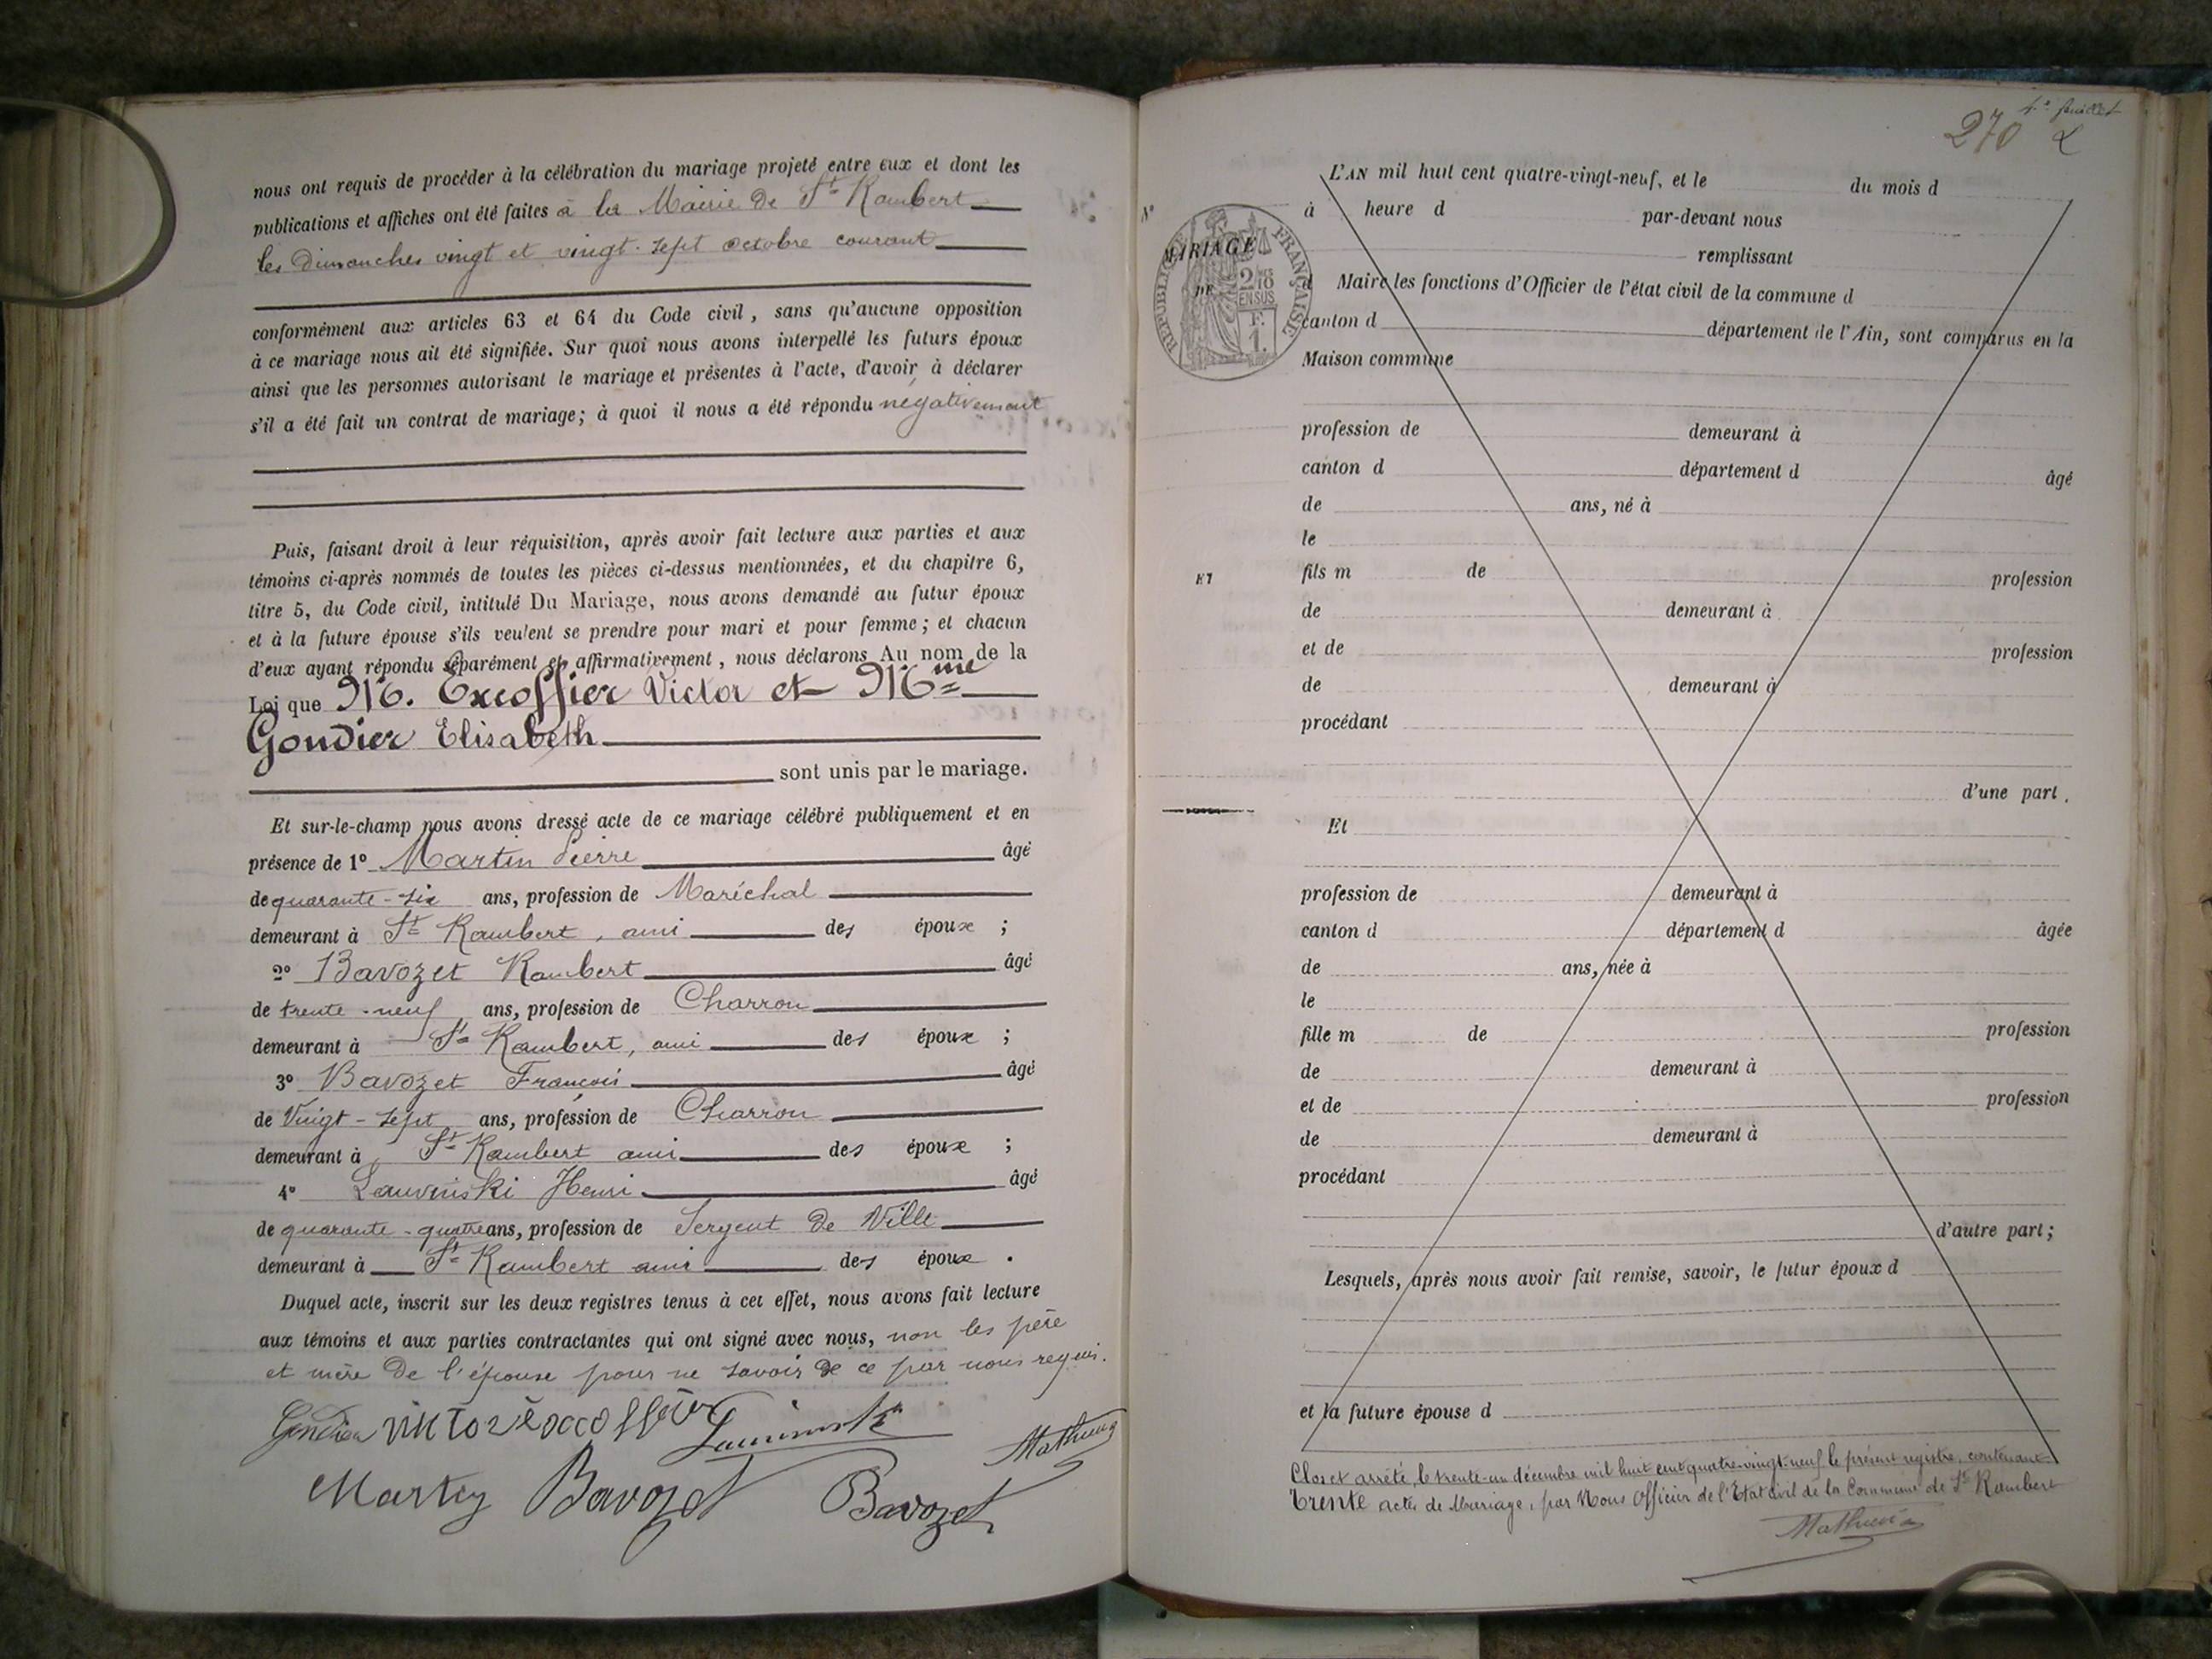 nous ont requis de procéder à la célébration du mariage projeté entre eux et dont les
publications et affiches ont été faites à la Mairie de St Rambert
les Dimanches vingt et vingt-sept octobre courant
conformément aux articles 63 et 64 du Code civil, sans qu'aucune opposition
à ce mariage nous ait été signifiée. Sur quoi nous avons interpellé les futurs époux
ainsi que les personnes autorisant le mariage et présentes à l'acte, d'avoir à déclarer
s'il a été fait un contrat de mariage; à quoi il nous a été répondu négativement
Puis, faisant droit à leur réquisition, après avoir fait lecture aux parties et aux
témoins ci-après nommés de toutes les pièces ci-dessus mentionnées, et du chapitre 6,
titre 5, du Code civil, intitulé Du Mariage, nous avons demandé au futur époux
et à la future épouse s'ils veulent se prendre pour mari et pour femme; et chacun
d'eux ayant répondu séparément et affirmativement, nous déclarons Au nom de la
Loi que M. Excoffier Victor et Mme
Gondier Elisabeth
sont unis par le mariage.
Et sur-le-champ nous avons dressé acte de ce mariage célébré publiquement et en
présence de 1º Martin Pierre âgé
de quarante-six ans, profession de Maréchal
demeurant à St Rambert, ami des époux ;
2º Bavozet Rambert âgé
de trente-neuf ans, profession de Charron
demeurant à St Rambert, ami des époux ;
3º Bavozet François âgé
de Vingt-sept ans, profession de Charron
demeurant à St Rambert ami des époux ;
4º Henri âgé
de quarante-quatre ans, profession de Sergent de Ville
demeurant à St Rambert ami des époux .
Duquel acte, inscrit sur les deux registres tenus à cet effet, nous avons fait lecture
aux témoins et aux parties contractantes qui ont signé avec nous, non les père
et mère De l'épouse pour ne savoir de ce par nous requis.
Gondier victor éxcoffier
Bavozet Bavozet
270
1er feuillet
Nº
MARIAGE
DE
RÉPUBLIQUE FRANÇAISE
2/10 EN SUS
F. 1.
L'AN mil huit cent quatre-vingt-neuf, et le du mois d
à heure d par-devant nous
remplissant
d Maire les fonctions d'Officier de l'état civil de la commune d
canton d département de l'Ain, sont comparus en la
Maison commune
profession de demeurant à
canton d département d âgé
de ans, né à
le
ET
fils m de profession
de demeurant à
et de profession
de demeurant à
procédant
d'une part.
Et
profession de demeurant à
canton d département d âgée
de ans, née à
le
fille m de profession
de demeurant à
et de profession
de demeurant à
procédant
d'autre part;
Lesquels, après nous avoir fait remise, savoir, le futur époux d
et la future épouse d
Clos et arrêté, le trente-un décembre mil huit cent quatre-vingt-neuf le présent registre, contenant
trente actes de Mariage, par Nous Officier de l'Etat civil de la Commune de St Rambert